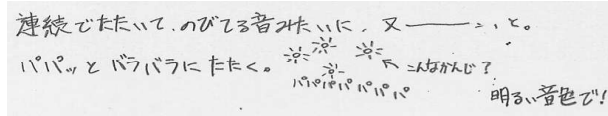 連続でたたいて、のびてる音みたいに、又――――、、と。
パパッとバラバラにたたく。
こんなかんじ？
パパパパパパパ
明るい音色で！